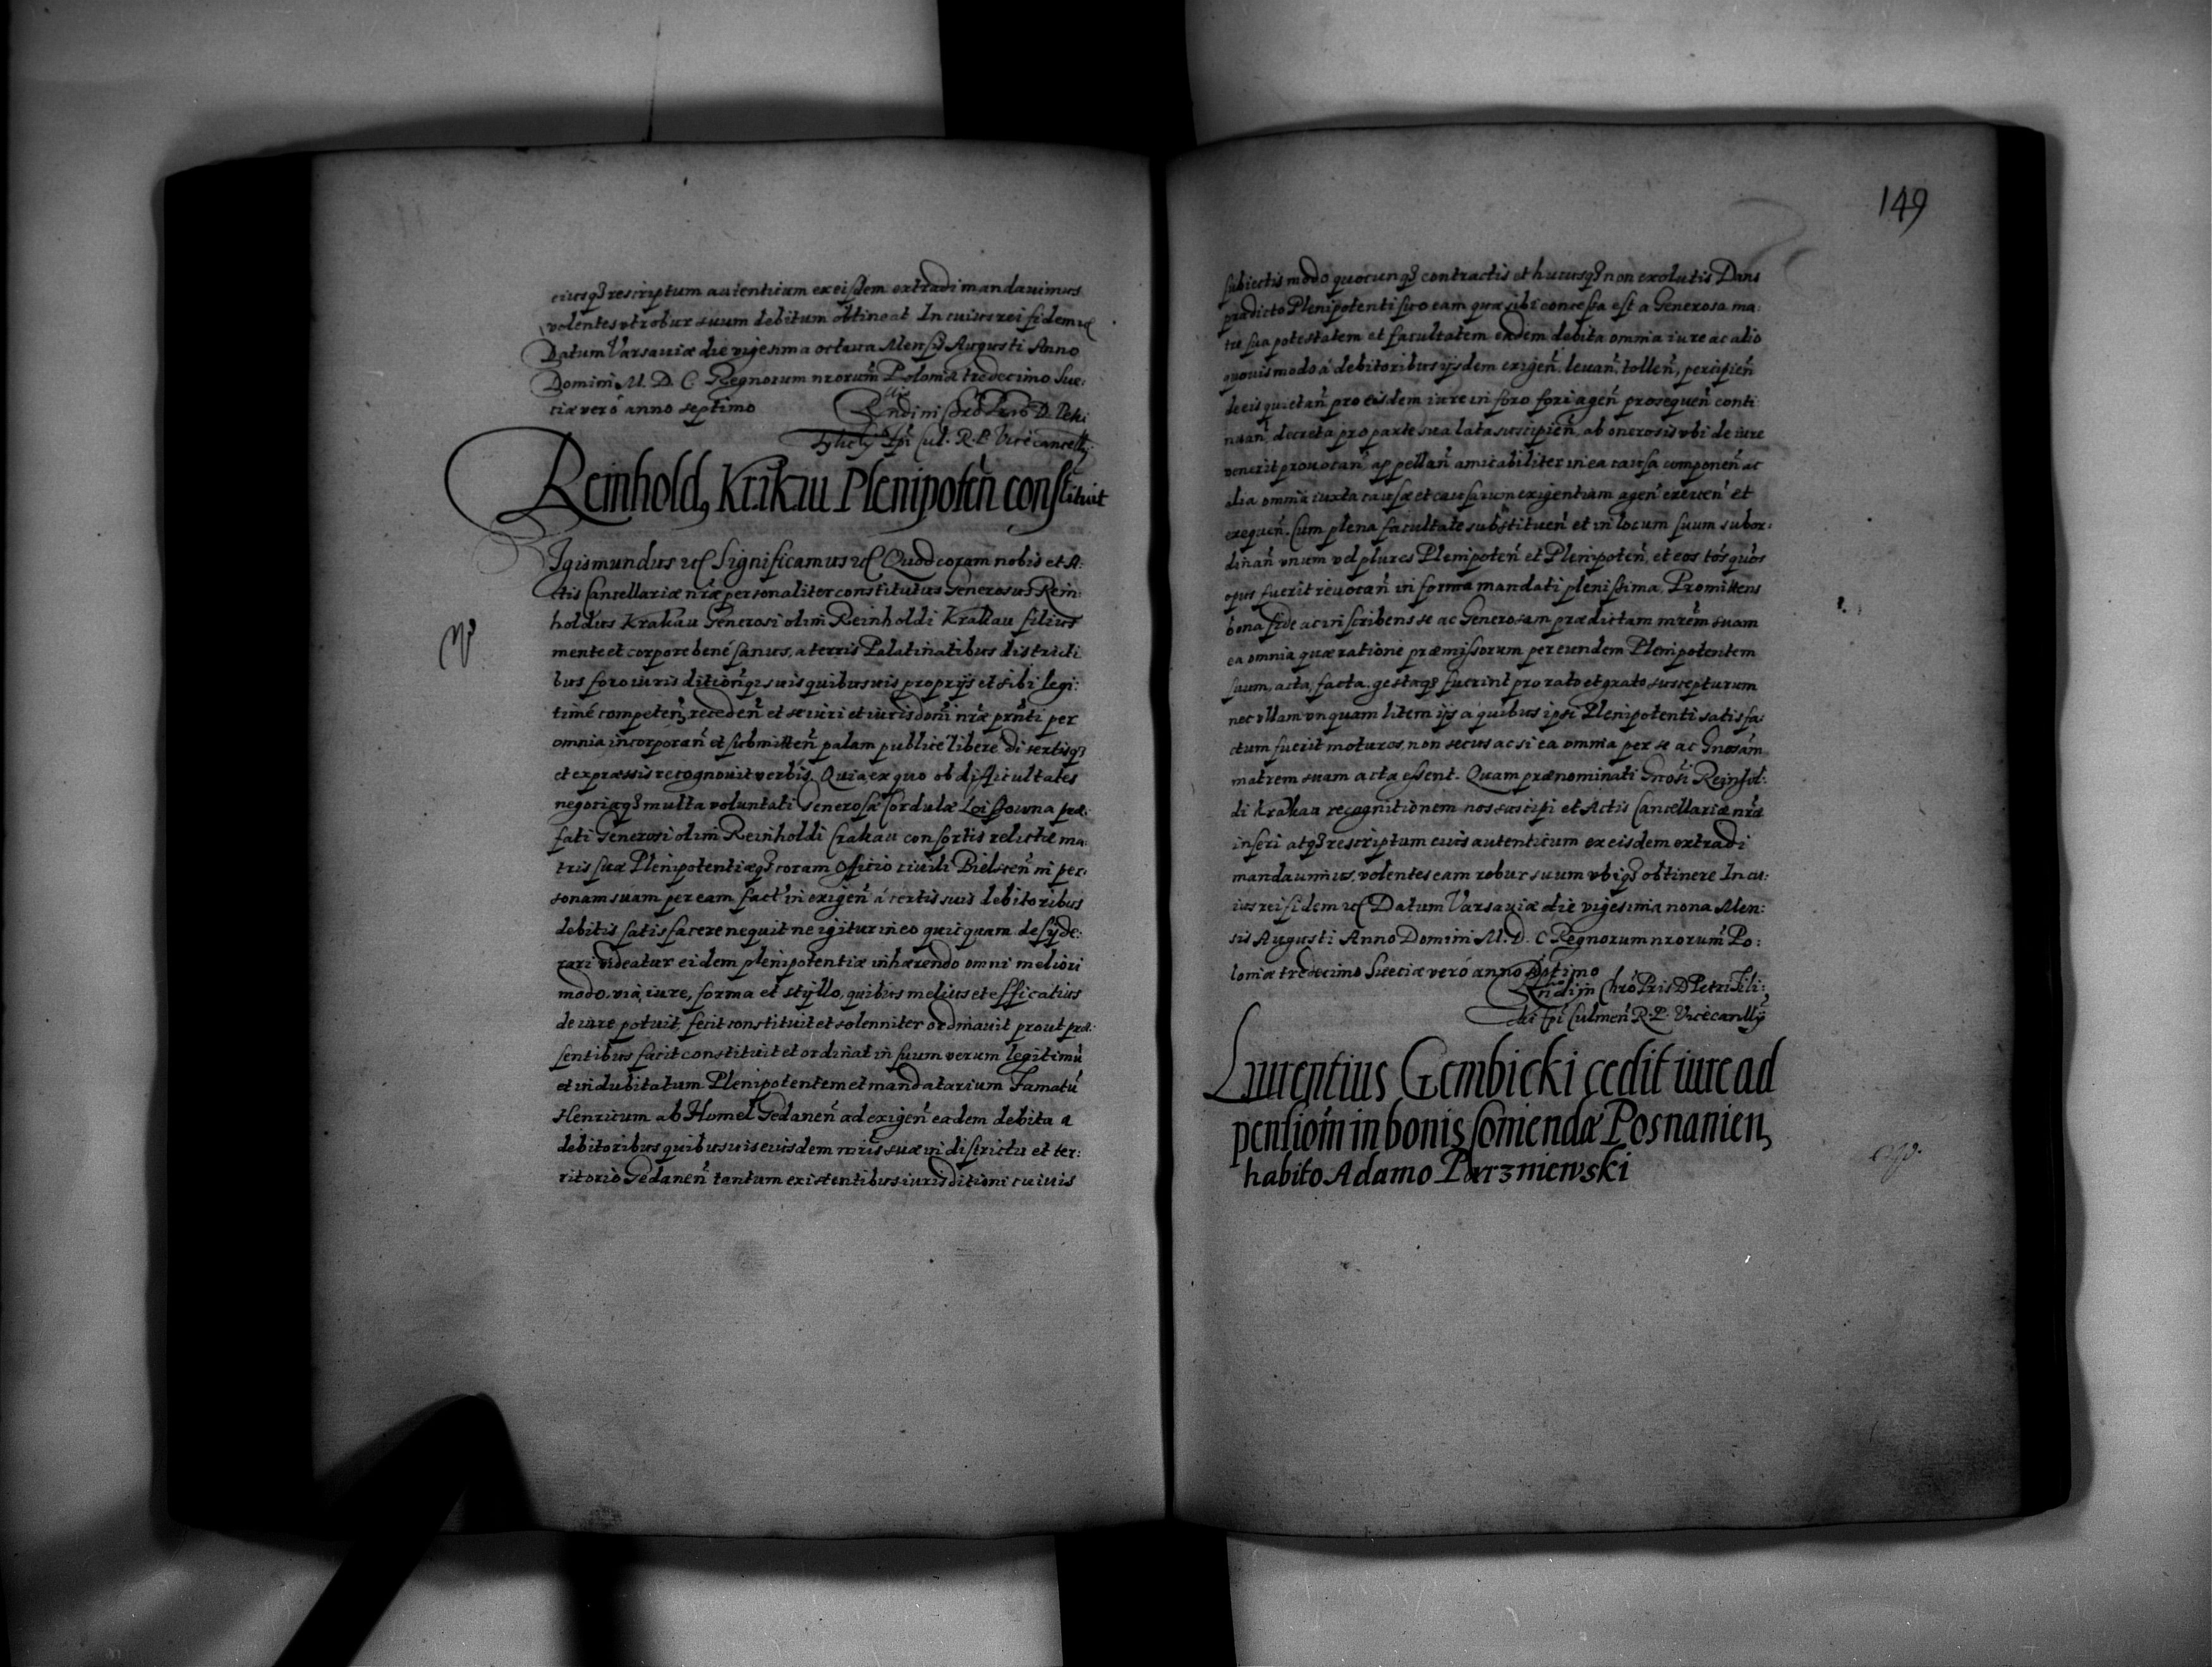 eiusq₃ rescriptum autenticum ex eisdem extradi mandauimus
volentes vt robur suum debitum obtineat In cuius rei fidem
Datum Varsauiæ die vigesima octaua Mensis Augusti Anno
Domini M. D. C. Regnorum nrorum Poloniæ tredecimo Sue:
tiæ vero anno septimo
Tylicky Epi Cul. R. P. Vicecancell:
Reinhold, Krakau Plenipoten̄ constituit
Sigismundus Significamus Quod coram nobis et A:
ctis Cancellariæ nræ personaliter constitutus Generosus Rein:
holdus Krakau Generosi olim Reinholdi Krakau filius
mente et corpore bene sanus, a terris Palatinatibus districti
bus foro iurisdition̄q₃ suis quibusuis proprijs et sibi legi:
time competen̄, receden̄ et se iuri et iurisdoni nræ prnti per
omnia incorporan̄ et submitten̄ palam publice libere disertisq₃
et expressis recognouit verbis. Quia ex quo ob difficultates
negociaq₃ multa voluntati Generosæ Cordulæ præ:
fati Generosi olim Reinholdi Crakau consortis relictæ ma:
tris suæ Plenipotentiæq₃ coram Officio ciuili Bielscen̄ in per:
sonam suam per eam fact in exigen̄ a certis suis debitoribus
debitis satisfacere nequit ne igitur in eo quicquam desyde:
rari videatur eidem plenipotentiæ inhærendo omni meliori
modo, via, iure, forma et styllo, quibus melius et efficatius
de iure potuit, fecit constituit et solenniter ordinauit prout præ:
sentibus facit constituit et ordinat in suum verum legitimū
et indubitatum Plenipotentem et mandatarium Famatū
Henricum ab Homel Gedanen̄ ad exigen̄ eadem debita a
debitoribus quibusuis eiusdem mris suæ in districtu et ter:
ritorio Gedanen̄ tantum existentibus iurisditioni cuiuis
149
subiectis modo quocunq₃ contractis et hucusq₃ non exolutis Dans
prædicto Plenipotenti suo eam quæ sibi concessa est a Generosa ma:
tre sua potestatem et facultatem eadem debita omnia iure ac alio
quouis modo a debitoribus ijsdem exigen̄. leuan̄, tollen̄, percipien̄
de eis quietan̄ pro eisdem iure in foro fori agen̄ prosequen̄ conti
nuan̄, decreta pro parte sua lata suscipien̄, ab onerosis vbi de iure
venerit prouocan̄ appellan̄ amicabiliter in ea causa componen̄ ac
alia omnia iuxta causæ et causarum exigentiam agen̄ et
exequen̄. Cum plena facultate substituen̄ et in locum suum subor:
dinan̄ vnum vel plures Plenipoten̄ et Plenipoten̄, et eos
opus fuerit reuocan̄ in forma mandati plenissima. Promittens
bona fide ac inscribens se ac Generosam prædictam mrem suam
ea omnia quæ ratione præmissorum per eundem Plenipotentem
suum, acta, facta. gestaq₃ fuerint pro rato et grato suscepturum
nec vllam vnquam litem ijs a quibus ipsi Plenipotenti satisfa:
ctum fuerit moturos, non secus ac si ea omnia per se ac Gnosam
matrem suam acta essent. Quam prænominati Gnosi Reinhol:
di Krakau recognitionem nos suscipi et Actis Cancellariæ nræ
inseri atq₃ rescriptum eius autenticum ex eisdem extradi
mandauimus, volentes eam robur suum vbiq₃ obtinere In cu:
ius rei fidem Datum Varsauiæ die vigesima nona Men:
sis Augusti Anno Domini M. D. C Regnorum nrorum Po:
loniæ tredecimo Sueciæ vero anno septimo
Chro Pris D Petri Tili:
cki Epi Culmen̄ R. P. Vicecanllij
Laurentius Gembicki cedit iure ad
pensiom in bonis Comendæ Posnanien,
habito Adamo Parzniewski